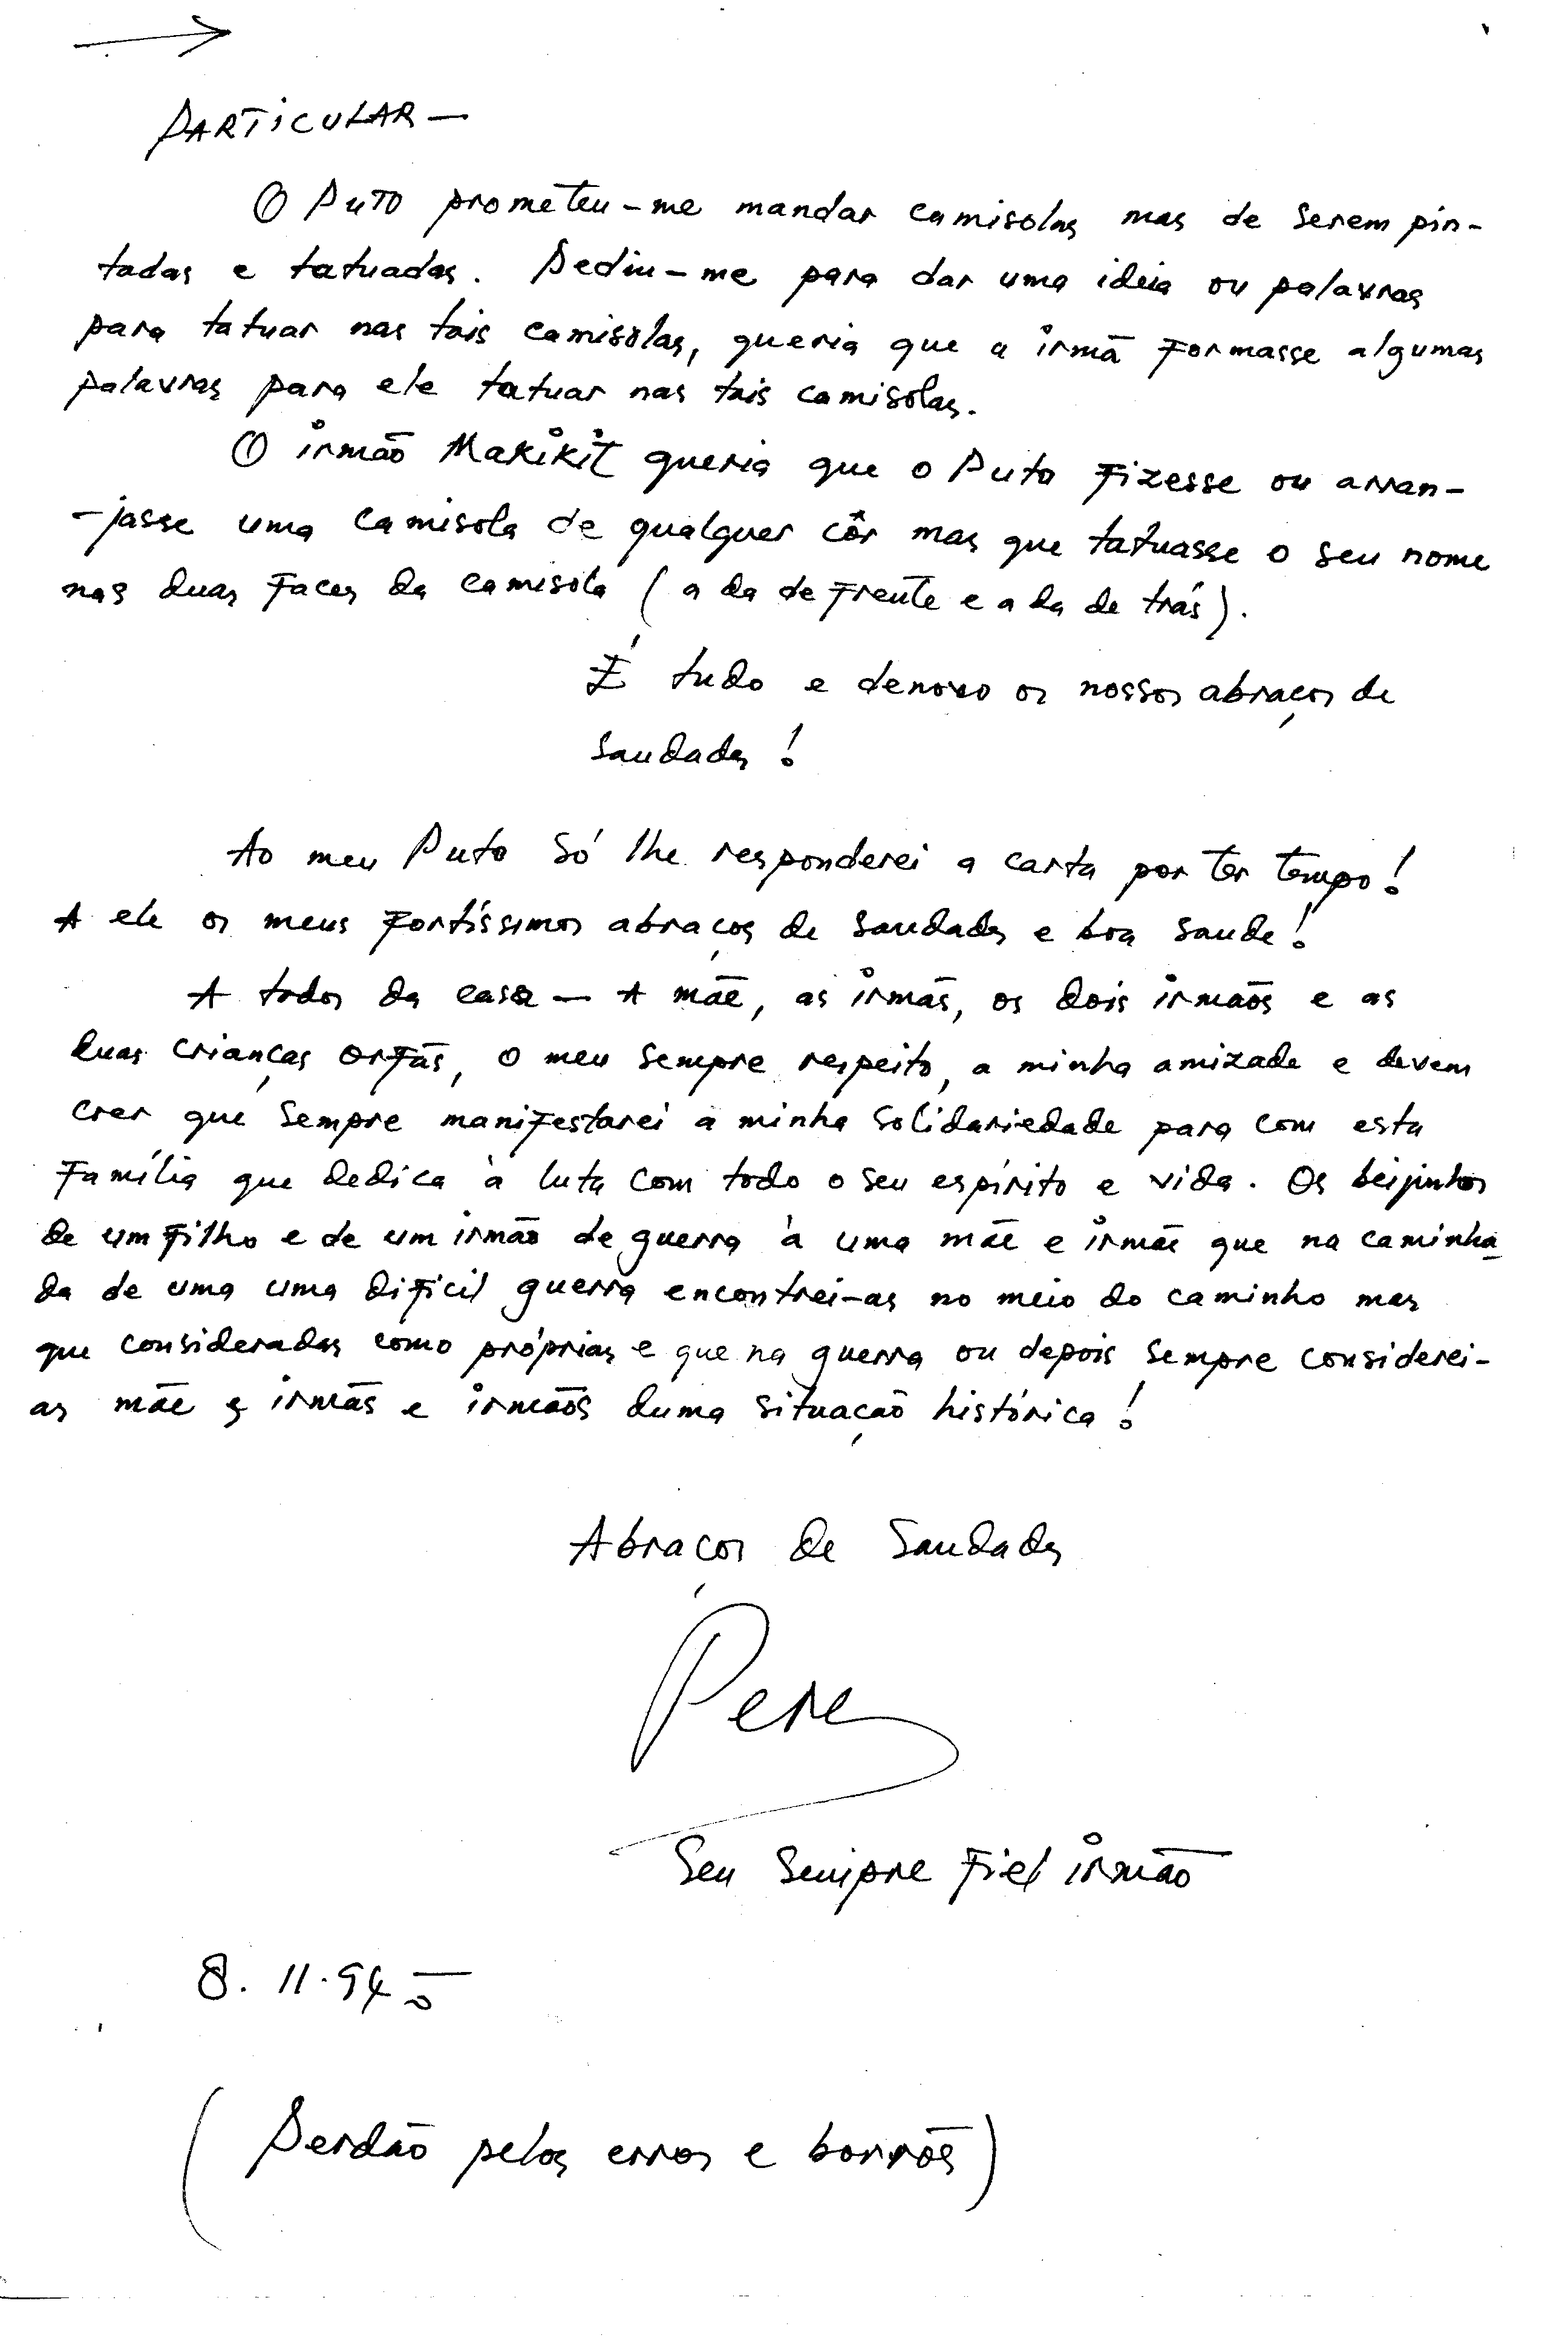 PARTICULAR —
O Puto prometeu-me mandar camisolas mas de serem pin-
tadas e tatuadas. Pediu-me para dar uma ideia ou palavras
para tatuar nas tais camisolas, queria que a irmã formasse algumas
palavras para ele tatuar nas tais camisolas.
O irmão Makikit queria que o Puto fizesse ou arran-
-jasse uma camisola de qualquer côr mas que tatuasse o seu nome
nas duas faces da camisola (a da de frente e a da de trás).
É tudo e denovo os nossos abraços de
saudades!
Ao meu Puto só lhe responderei a carta por ter tempo!
A ele os meus fortíssimos abraços de saudades e boa saude!
A todos da casa — A mãe, as irmãs, os dois irmãos e as
duas crianças orfãs, o meu sempre respeito, a minha amizade e devem
crer que sempre manifestarei a minha solidariedade para com esta
família que dedica à luta com todo o seu espírito e vida. Os beijinhos
de um filho e de um irmão de guerra à uma mãe e irmãs que na caminha
da de uma uma difícil guerra encontrei-as no meio do caminho mas
que consideradas como próprias e que na guerra ou depois sempre considerei-
as mãe e irmãs e irmãos duma situação histórica!
Abraços de Saudades
Pere
Seu Sempre Fiel irmão
8.11.94
(Perdão pelos erros e borrõs)